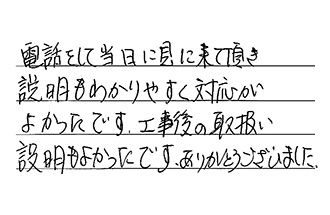 電話をして当日に見に来て頂き
説明もわかりやすく対応が
よかったです.工事後の取扱い
説明もよかったです.ありがとうございました.